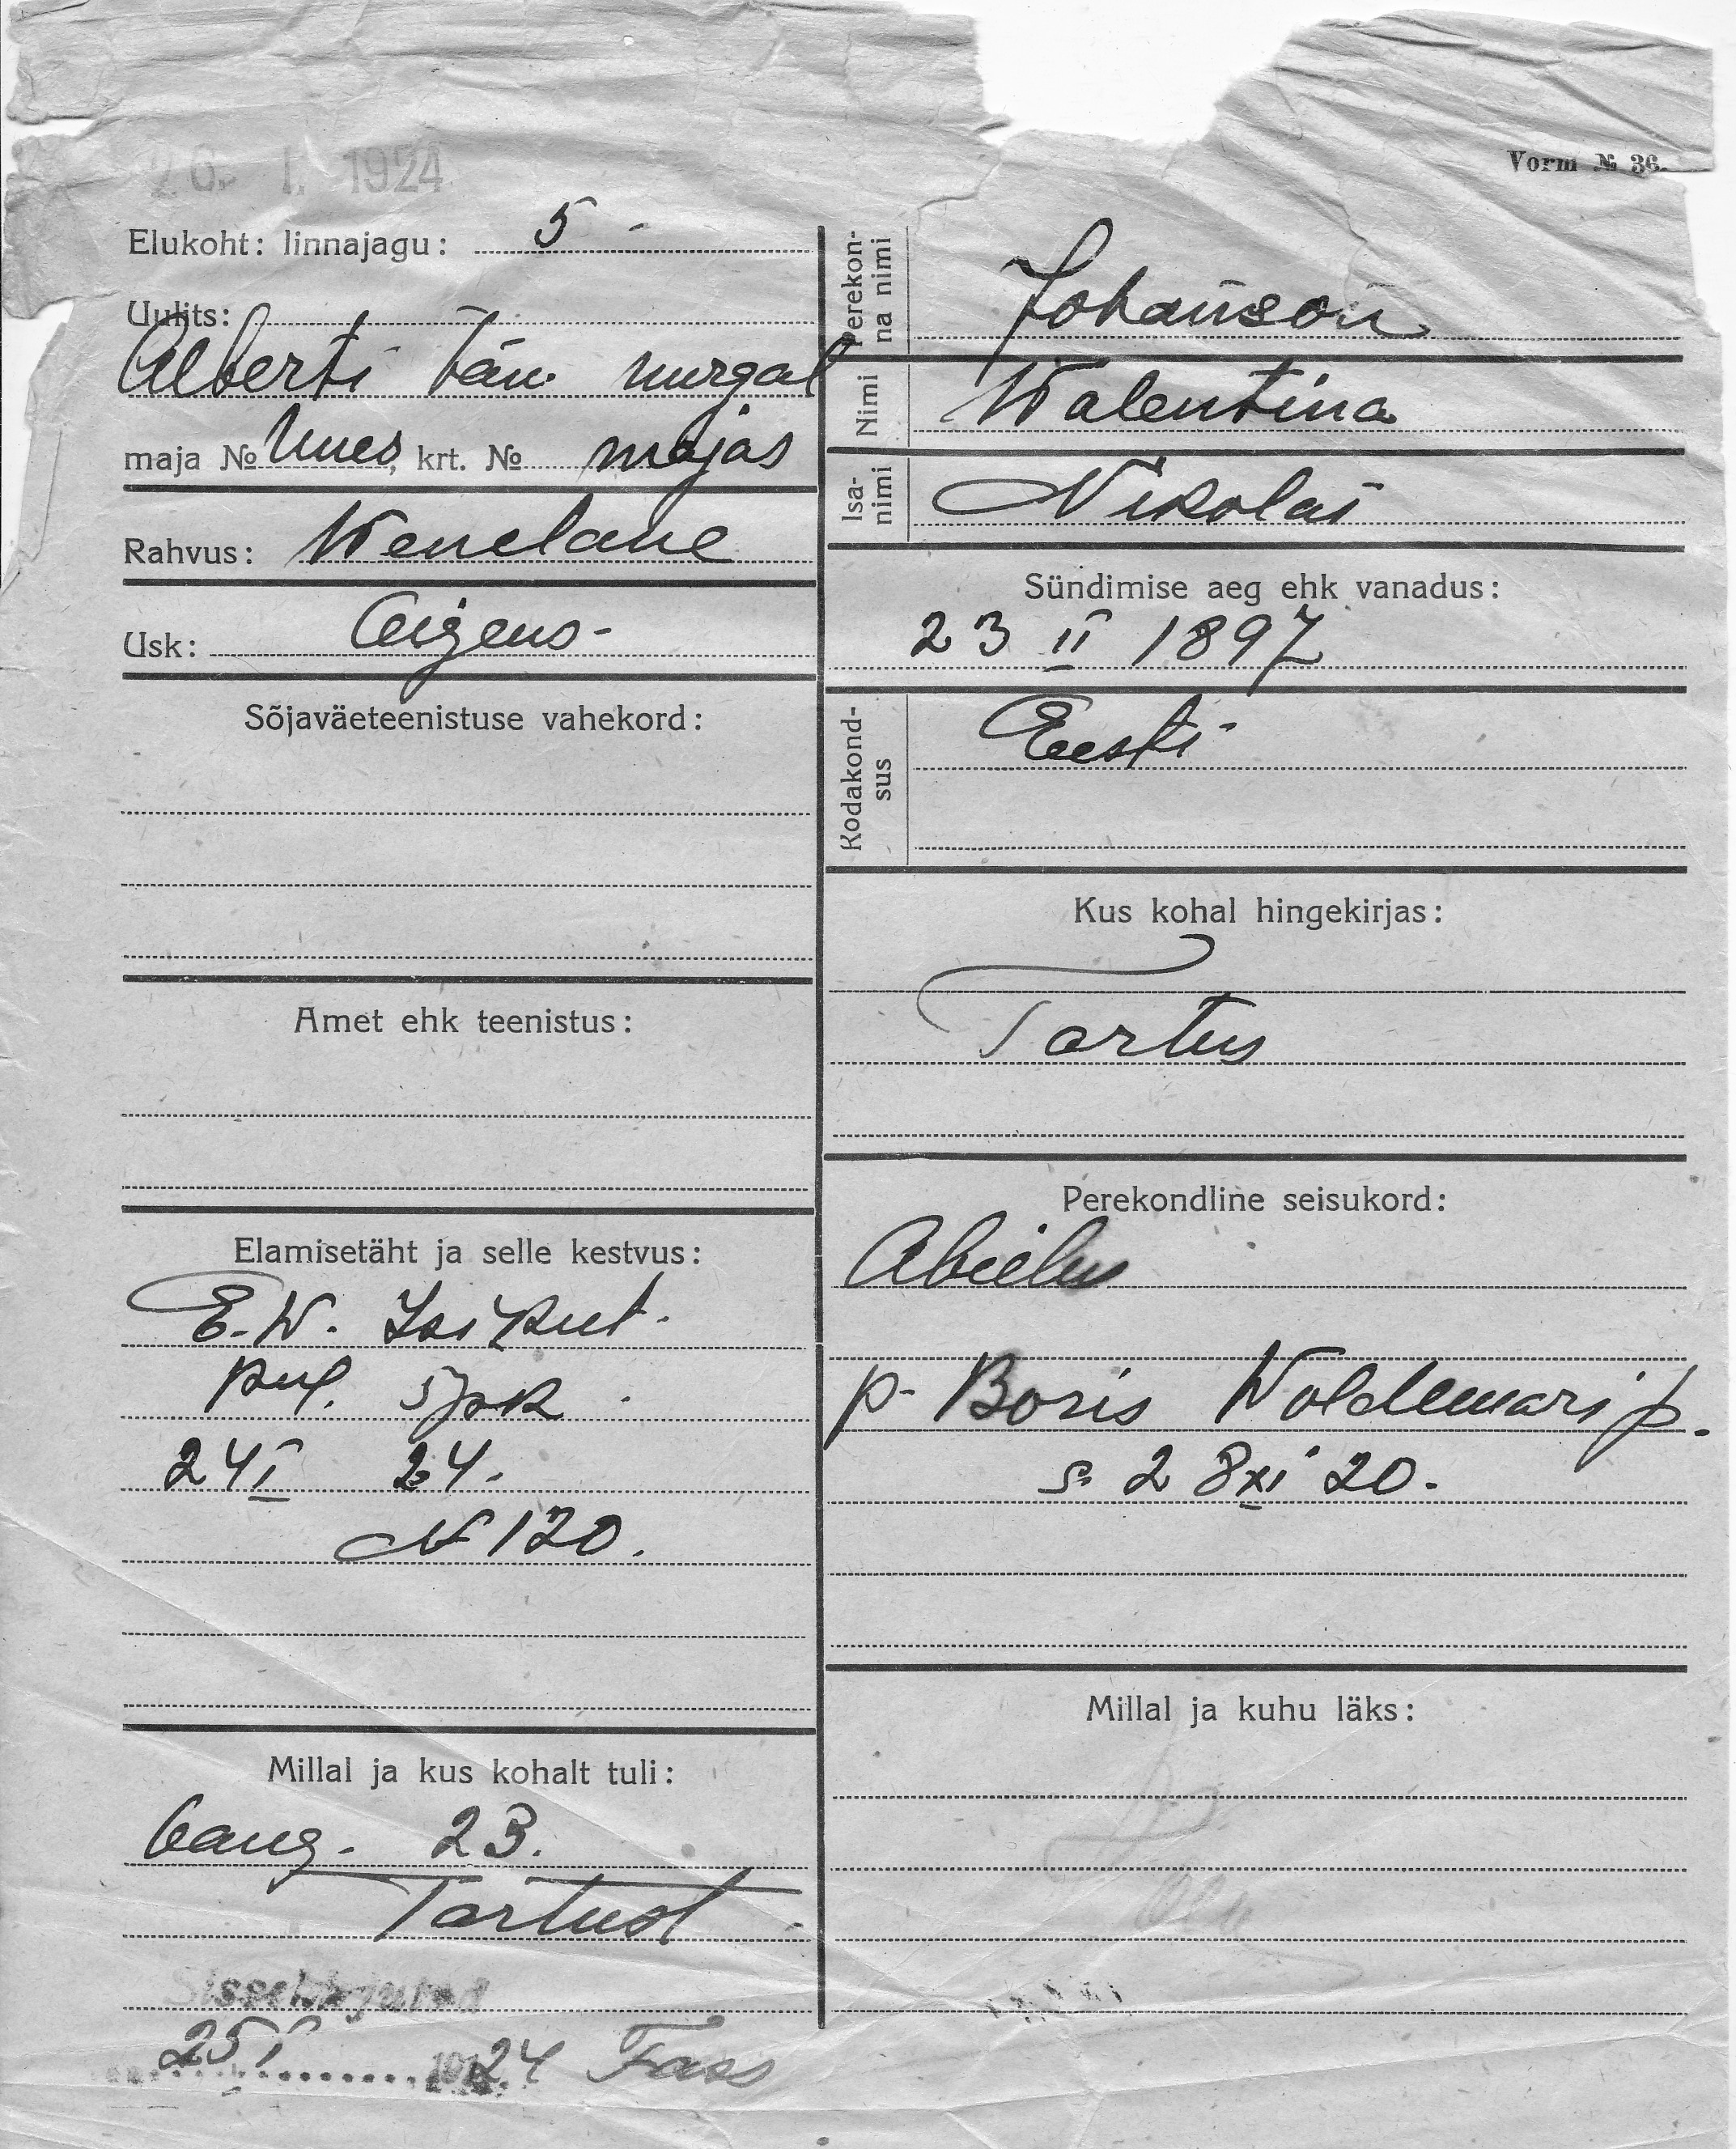 26. I. 1924
Vorm № 36.
Elukoht: linnajagu: 5 -
Uulits:
Alberti tän. nurgal
maja № Uues, krt. № majas
Rahvus: Wenelane
Usk: Õigeus-
Sõjaväeteenistuse vahekord:
Amet ehk teenistus:
Elamisetäht ja selle kestvus:
E.W. Isikut.
24 I 24.
N 120.
Millal ja kus kohalt tuli:
6 aug. 23.
Tartust
Sissekirjutud
25 I 1924 Fass
Perekon-
na nimi
Johanson
Nimi Walentina
Isa-
nimi
Nikolai
Sündimise aeg ehk vanadus:
23 II 1897
Kodakond-
sus
Eesti
Kus kohal hingekirjas:
Tartus
Perekondline seisukord:
Abielus
p- Boris Woldemari p.
s. 28 XI 20.
Millal ja kuhu läks: